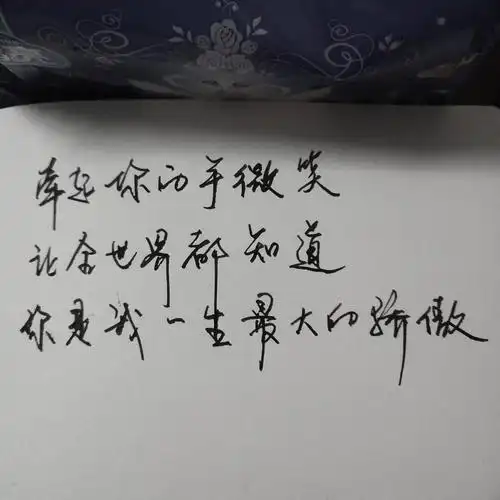 牵起你的手微笑
让全世界都知道
你是我一生最大的骄傲